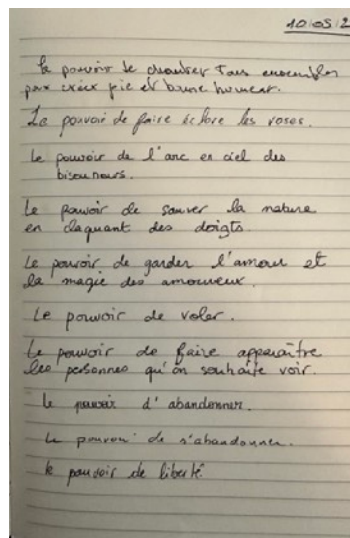 10/05/2
Le pouvoir de chanter tous ensembles
pour créer joie et bonne humeur.
Le pouvoir de faire éclore les roses.
Le pouvoir de l'arc en ciel des
bisounours.
Le pouvoir de sauver la nature
en claquant des doigts.
Le pouvoir de garder l'amour et
la magie des amoureux.
Le pouvoir de voler.
Le pouvoir de faire apparaître
les personnes qu'on souhaite voir.
Le pouvoir d'abandonner.
Le pouvoir de s'abandonner.
Le pouvoir de liberté.